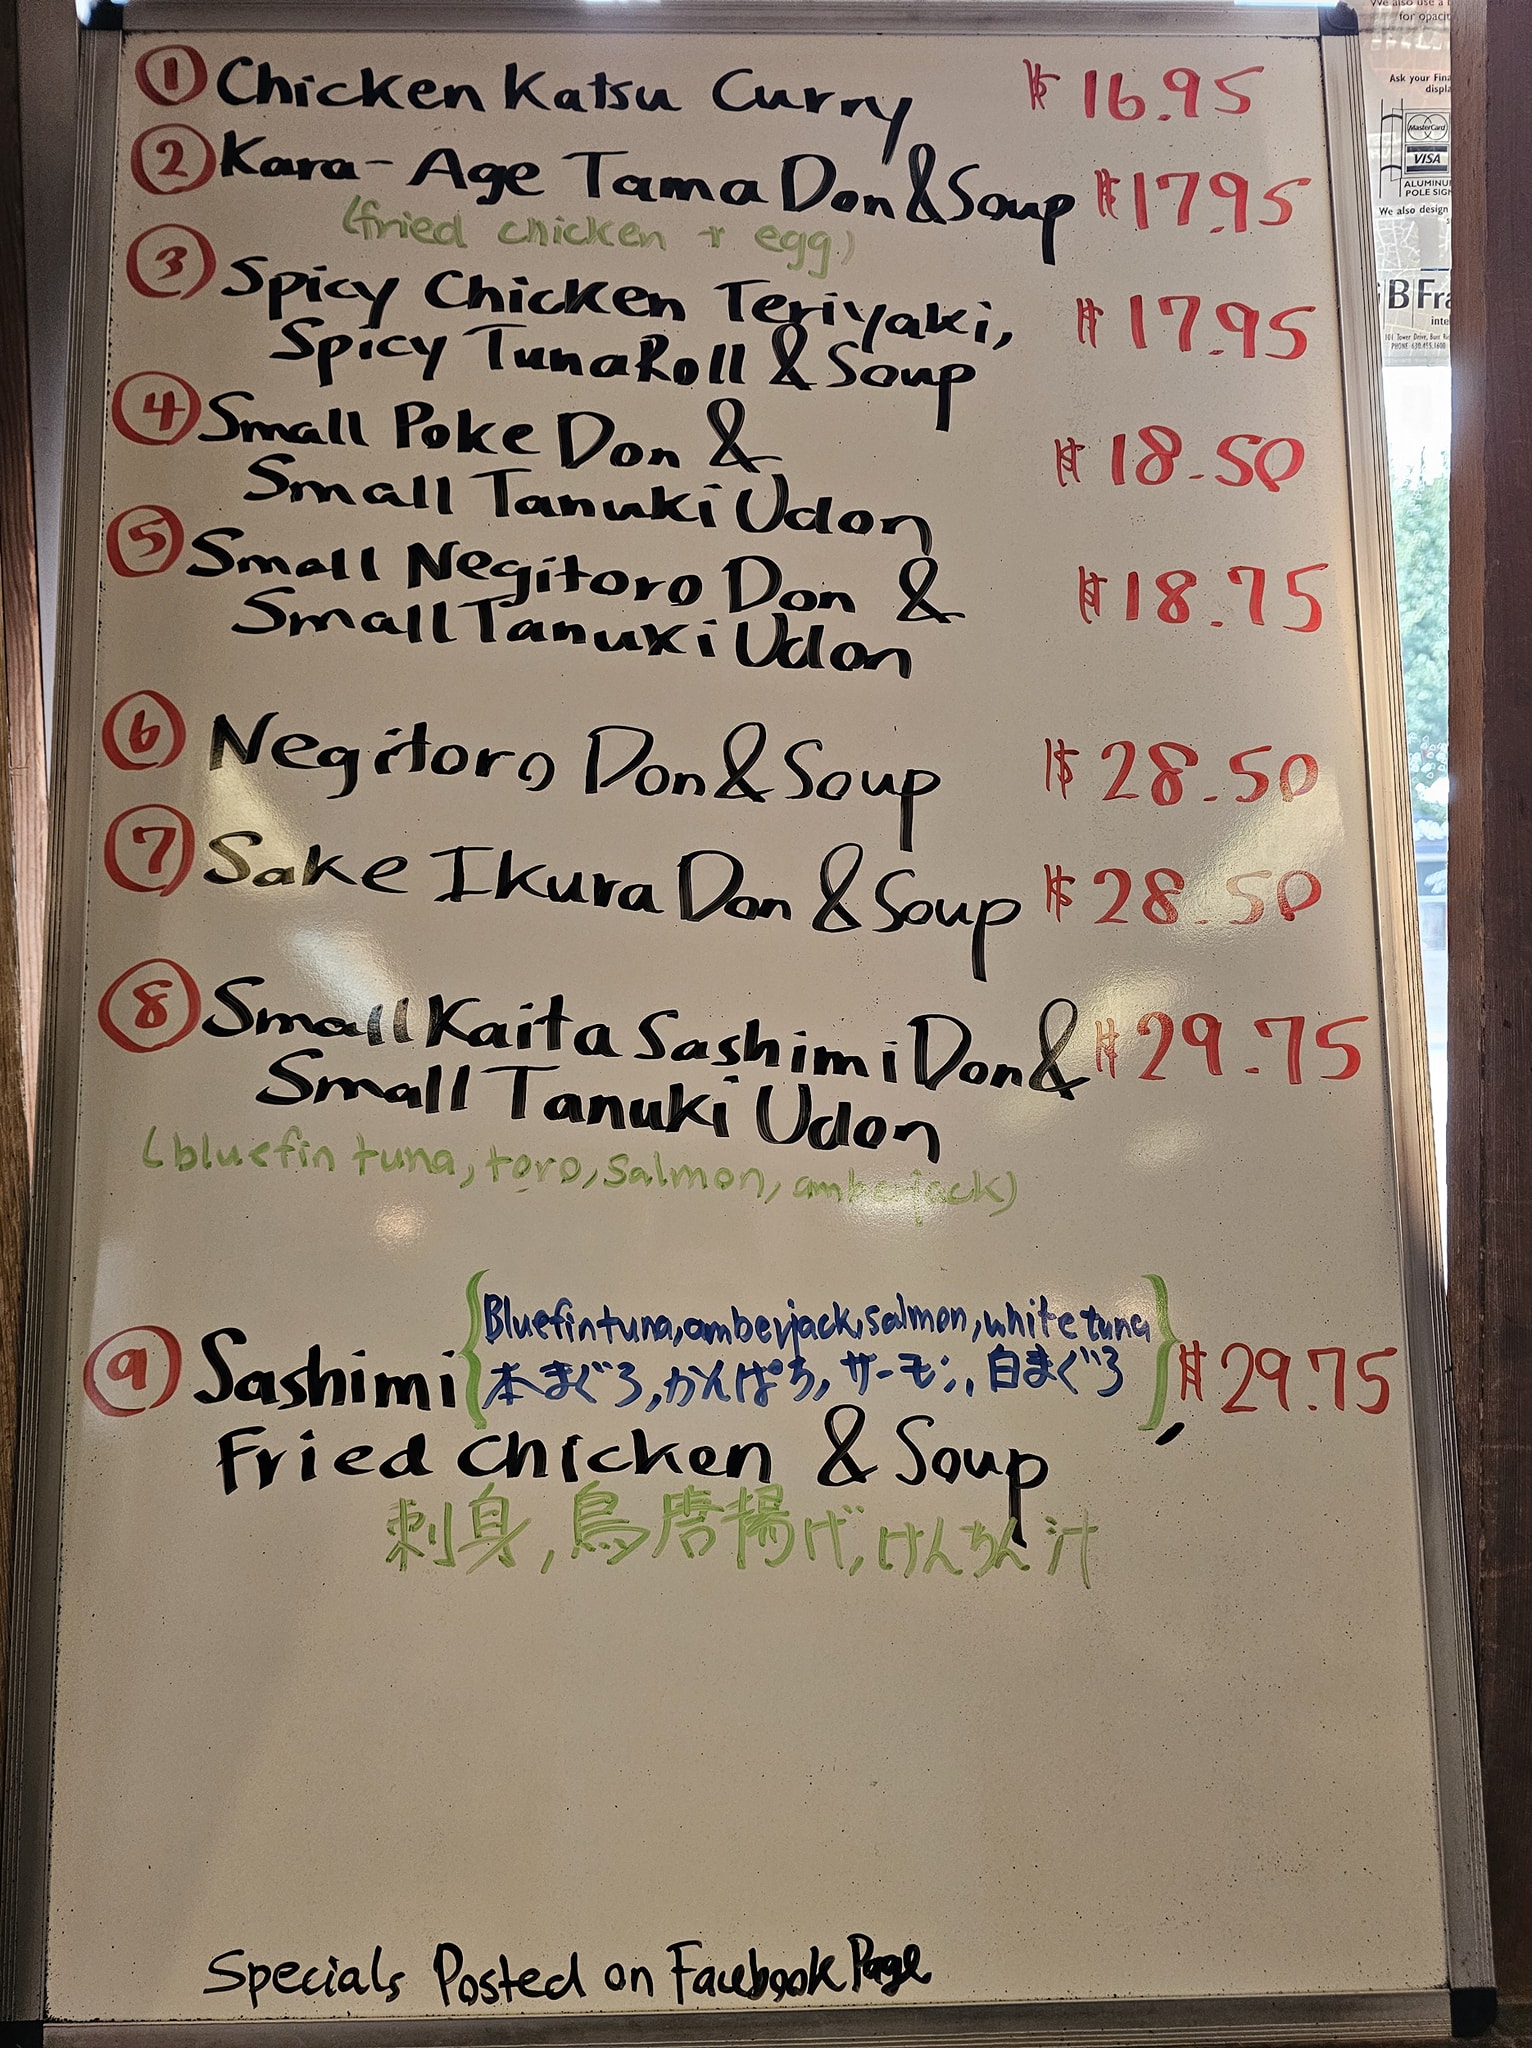 ① Chicken Katsu Curry $16.95
② Kara-Age Tama Don & Soup $17.95
(fried chicken + egg)
③ Spicy Chicken Teriyaki, $17.95
Spicy Tuna Roll & Soup
④ Small Poke Don & $18.50
Small Tanuki Udon
⑤ Small Negitoro Don & $18.75
Small Tanuki Udon
⑥ Negitoro Don & Soup $28.50
⑦ Sake Ikura Don & Soup $28.50
⑧ Small Kaita Sashimi Don & $29.75
Small Tanuki Udon
(bluefin tuna, toro, salmon, amberjack)
Bluefin tuna, amberjack, salmon, white tuna
⑨ Sashimi { 本まぐろ, かんぱち, サーモン, 白まぐろ }, $29.75
Fried chicken & Soup
刺身, 鳥唐揚げ, けんちん汁
Specials Posted on Facebook Page
for opacit
Ask your Fina
displa
MasterCard
VISA
ALUMINU
POLE SIGN
We also design
B Fra
inte